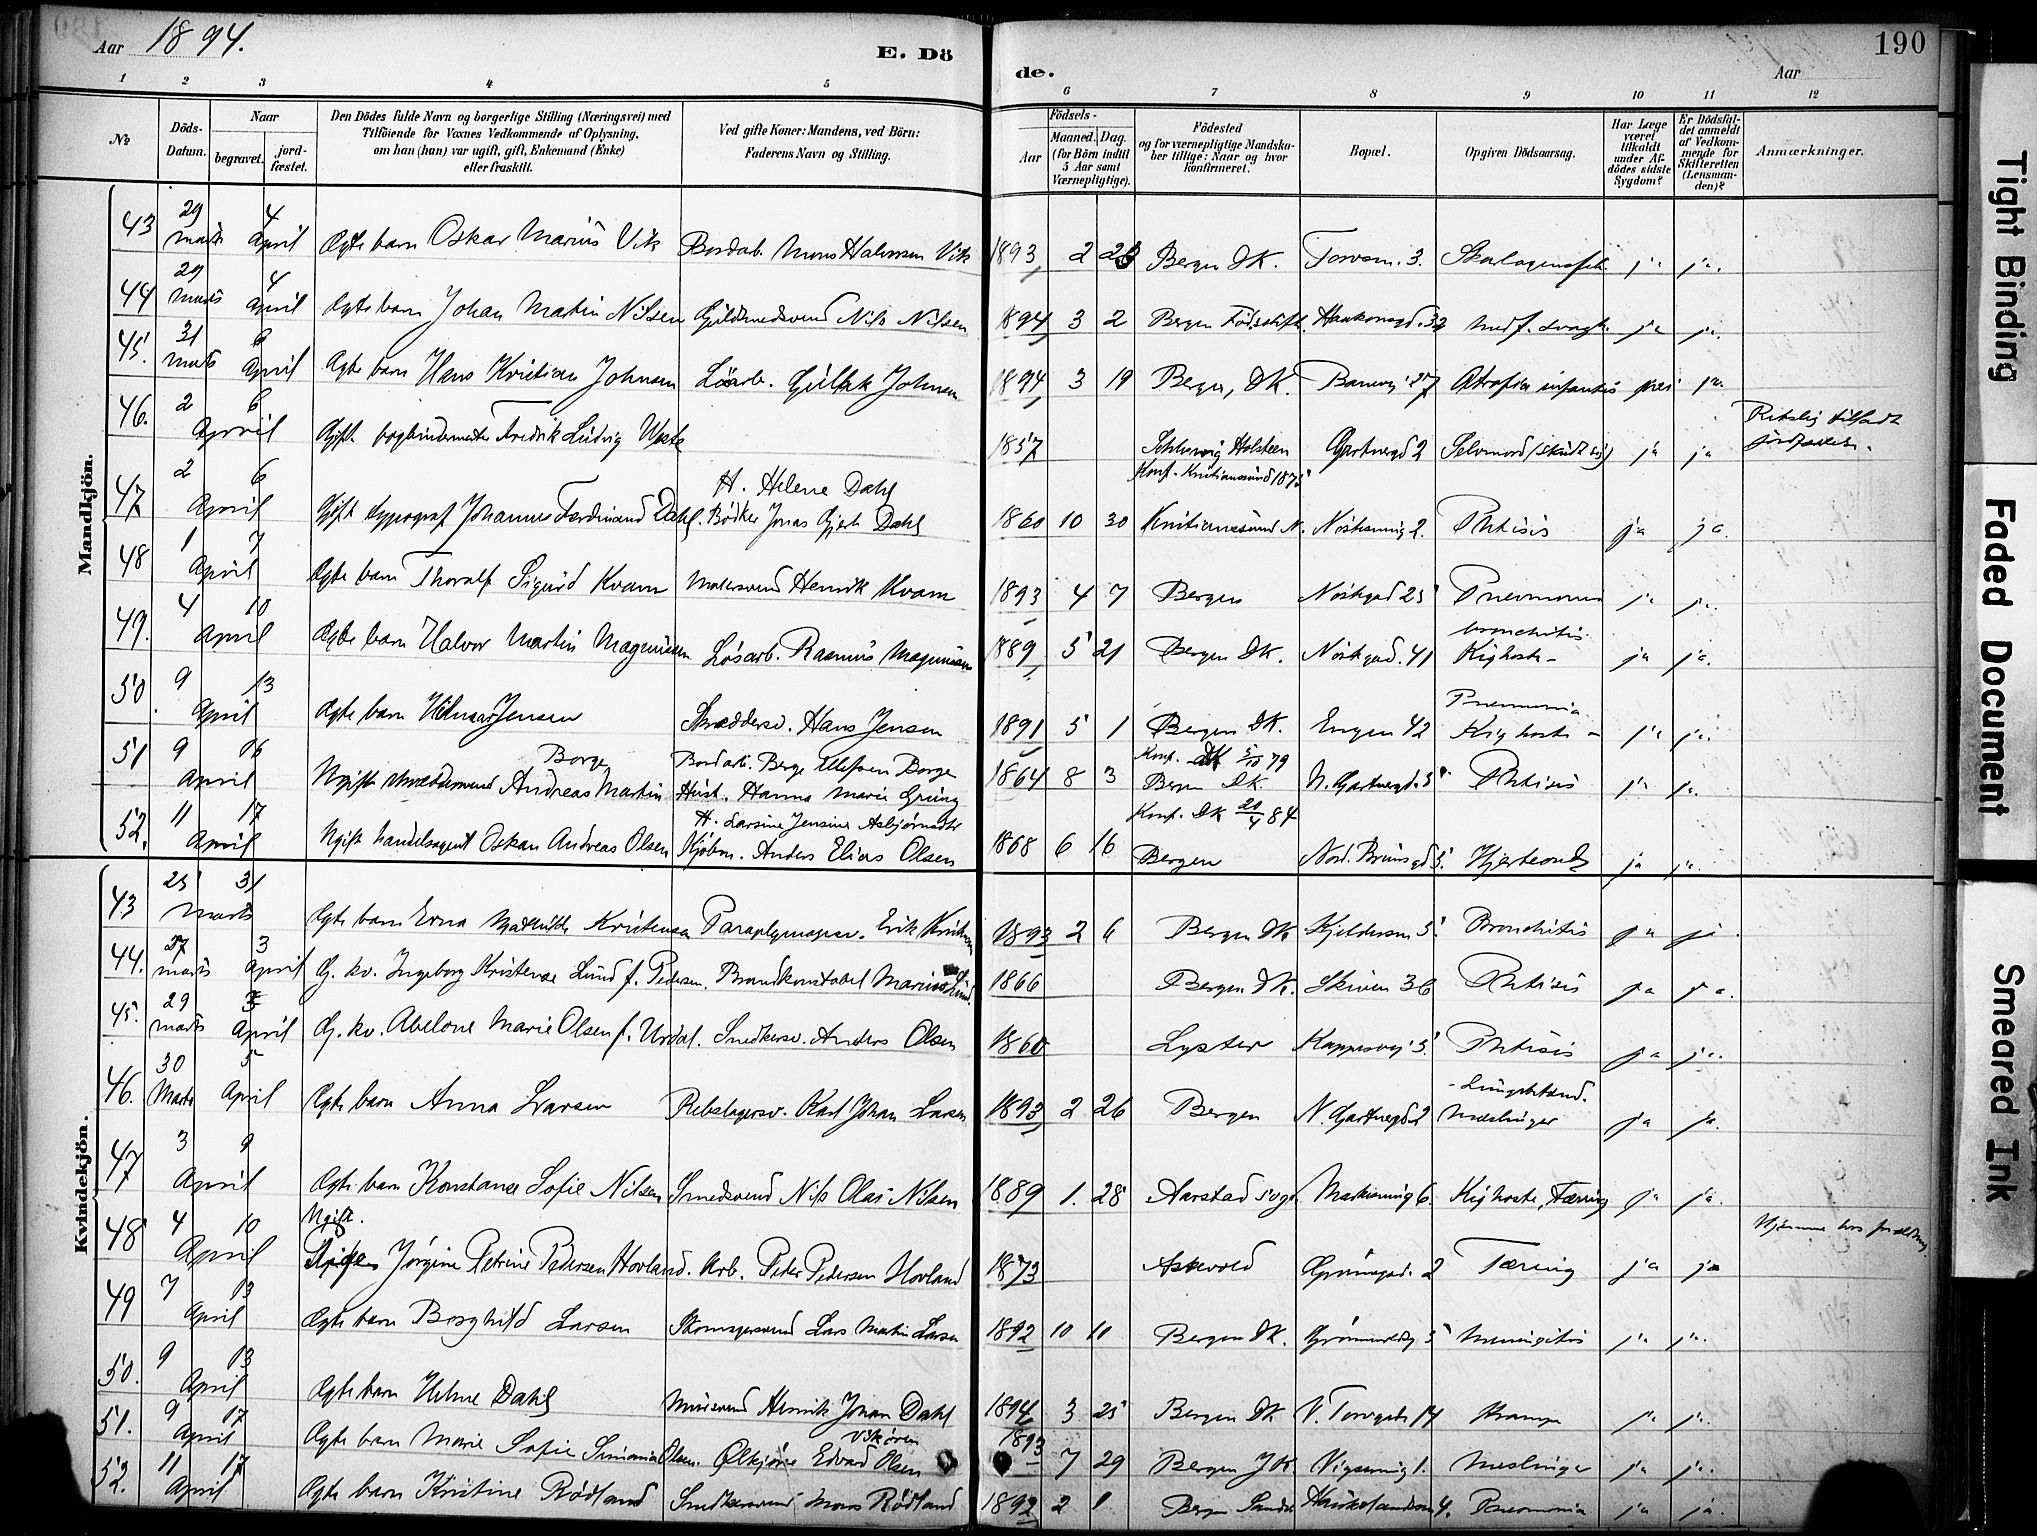 Aar 1894.
E. Döde.
Aar
190
1 2 3 4 5 6 7 8 9 10 11 12
№
Döds-Datum.
Naar
begravet.
jordfæstet.
Den Dödes fulde Navn og borgerlige Stilling (Næringsvei) med
Tilföiende for Voxnes Vedkommende af Oplysning,
om han (hun) var ugift, gift, Enkemand (Enke)
eller fraskilt.
Ved gifte Koner: Mandens, ved Börn:
Faderens Navn og Stilling.
Födsels-
Aar
Maaned. Dag.
(for Börn indtil
5 Aar samt
Værnepligtige).
Födested
og for værnepligtige Mandskaber tillige: Naar og hvor
konfirmeret.
Bopæl.
Opgiven Dödsaarsag.
Har Læge
været
tilkaldt
under Afdödes sidste
Sygdom?
Er Dödsfaldet anmeldt
af Vedkommende for
Skifteretten
(Lensmanden)?
Anmærkninger.
Mandkjön.
43 29 marts 4 April Ægte barn Oskar Marius Vik Bordarb. Mons Halvorsen Vik 1893 2 28 Bergen DK. Torvm. 3. ja ja.
44 29 marts 4 April Ægte barn Johan Martin Nilsen Guldsmedsvend Nils Nilsen 1894 3 2 Bergen Födselsstift Haakonsgd. 32 medf. svagh. ja ja
45. 31 marts 6 April Ægte barn Hans Kristian Johnsen Lösarb. Johnsen 1894 3 19 Bergen, DK. 27 Atrofia infantis nei ja.
46. 2 April 6 Gift bogbindermester Fredrik Ludvig 1857 Schlesvig Holsteen 2 Selvmord (skudt sig) ja ja
47 2 April 6 Gift typograf Johannes Ferdinand Dahl. H. Helene Dahl Bödker Jonas Dahl 1860 10 30 Konf. Kristianssund 1875 Kristianssund N. 2. Phtisis ja ja.
48 1 April 7 Ægte barn Thoralf Sigurd Kvam Malersvend Henrik Kvam 1893 4 7 Bergen Nöstegad 25 Pneumonia ja ja.
49. 4 April 10 Ægte barn Halvor Martin Magnussen Lösarb. Rasmus Magnussen 1889 5 21 Bergen DK. Nöstegad. 41 bronchitis Kighoste ja ja.
50 9 April 13 Ægte barn Hilmar Jensen Skræddersv. Hans Jensen 1891 5 1 Bergen DK. Engen 42 Pneumonia Kighoste ja ja.
51 9 April 16 Ugift skræddersvend Andreas Martin Borge Bordarb. Berge Ellefsen Borge Hust. Hanna Marie Grung 1864 8 3 Konf. DK 5/10 79 Bergen DK. N. Gartnergd. 5 Phtisis ja ja.
52. 11 April 17 Ugift handelsagent Oskar Andreas Olsen H. Larsine Jensine Asbjörnsdtr Kjöbm. Anders Elias Olsen 1868 6 16 Konf. DK 20/4 84 Bergen Nord. Brunsgd 5. Hjerteonde ja ja.
Kvindekjön.
43 25 Marts 31 Ægte barn Erna Mathilde Kristensen Paraplymagersv. Erik Kristensen 1893 2 6 Bergen DK Kjeldersm 5. Bronchitis ja ja.
44. 27 marts 3 April G. kv. Ingeborg Kristense Lund f. Pedersen. Brandkonstabel Marius Lund. 1866 Bergen DK. Skiven 36 Phtisis ja ja.
45. 29 marts 3 April G. kv. Abelone Marie Olsen f. Urdal. Snedkersv. Anders Olsen 1860 Lyster Kappesvei 5. Phtisis ja ja.
46. 30 Marts 5 April Ægte barn Anna Larsen Rebslagersv. Karl Johan Larsen 1893 2 26 Bergen N. Gartnergd 2 Lungebetænd. mæslinger ja ja.
47 3 April 9 Ægte barn Konstanse Sofie Nilsen Smedsvend Nils Olai Nilsen 1889 1. 28 Aarstad sogn 6. Kighoste, Tæring ja ja.
48 4 April 10 Ugift. Jörgine Petrine Pedersen Hovland. Arb. Peder Pedersen Hovland 1873 Askvold 2 Tæring ja ja Hjemme hos forældrene
49 7 April 13 Ægte barn Borghild Larsen Skomagersvend Lars Martin Larsen 1892 10 10 Bergen DK. 5 Meningitis ja ja.
50. 9 April 13 Ægte barn Helene Dahl Mursvend Henrik Johan Dahl 1894 3 25 Bergen DK V. Torvgade 14 Krampe ja ja.
51. 9 April 17 Ægte barn Marie Sofie Olsen. Edvard Olsen 1893 7 29 Bergen JK. 1. Meslinger ja ja.
52. 11 April 17 Ægte barn Kristine Rödland Snedkersvend Mons Rödland 1892 2 1 Bergen 4. Pneumonia ja ja
Tight Binding
Faded Document
Smeared Ink